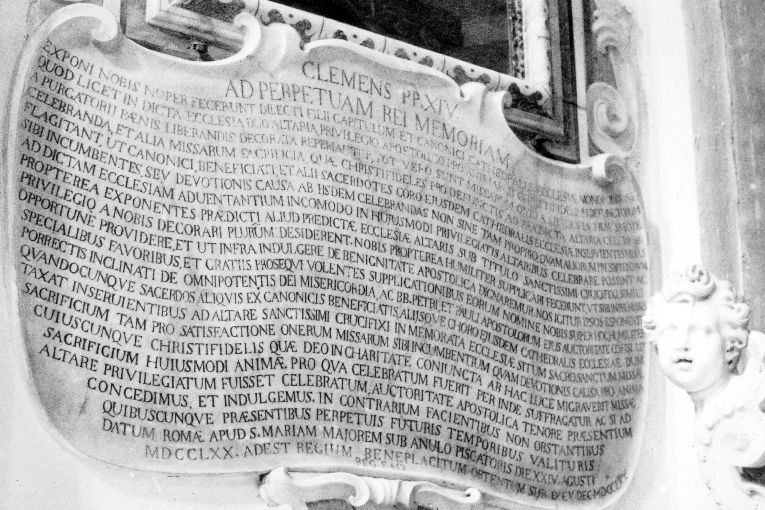 CLEMENS PP. XIV.
AD PERPETUAM REI MEMORIAM
EXPONI NOBIS NUPER FECERUNT DILECTI FILII CAPITULUM ET CANONICI CATHEDRALIS ECCLESIÆ
QUOD LICET IN DICTA ECCLESIA DUO ALTARIA PRIVILEGIO APOSTOLICO PRO
A PURGATORII PÆNIS LIBERANDIS DECORATA REPERIANTUR, TOT VERO SUNT MISSARUM
CELEBRANDA, ET ALIA MISSARUM SACRIFICIA, QUÆ CHRISTIFIDELES PRO DEFUNCTIS AD PRÆDICTA ALTARIA
FLAGITANT, UT CANONICI, BENEFICIATI, ET ALII SACERDOTES CORO EJUSDEM CATHEDRALIS ECCLESIÆ INSERVIENTES
SIBI INCUMBENTES, SEU DEVOTIONIS CAUSA AB IISDEM CELEBRANDAS NON SINE TAM PROPRIO, QUAM ALIORUM
AD DICTAM ECCLESIAM ADVENTANTIUM INCOMODO IN HUIUSMODI PRIVILEGIATIS ALTARIBUS CELEBRARE POSSINT
PROPTEREA EXPONENTES PRÆDICTI ALIUD PREDICTÆ ECCLESIÆ ALTARE SUB TITULO SANCTISSIMI CRUCIFIXI
PRIVILEGIO A NOBIS DECORARI PLURIMUM DESIDERENT. NOBIS PROPTEREA HUMILITER SUPPLICARI FECERUNT, UT SIBI IN PRÆMISSIS
OPPORTUNE PROVIDERE, ET UT INFRA INDULGERE DE BENIGNITATE APOSTOLICA DIGNAREMUR. NOS IGITUR IPSOS EXPONENTES
SPECIALIBUS FAVORIBUS, ET GRATIIS PROSEQVI VOLENTES SUPPLICATIONIBUS EORUM NOMINE NOBIS SUPER HOC HUMILITER
PORRECTIS INCLINATI DE OMNIPOTENTIS DEI MISERICORDIA, AC BB. PETRI, ET PAULI APOSTOLORUM EJUS AUCTORITATE CONFISI, UT
QVANDOCUNQVE SACERDOS ALIQVIS EX CANONICIS BENEFICIATIS, ALIJSQVE CHORO EJUSDEM CATHEDRALIS ECCLESIÆ DUM
TAXAT INSERVIENTIBUS AD ALTARE SANCTISSIMI CRUCIFIXI IN MEMORATA ECCLESIA SITUM SACROSANCTUM MISSÆ
SACRIFICIUM TAM PRO SATISFACTIONE ONERUM MISSARUM SIBI INCUMBENTIUM QVAM DEVOTIONIS CAUSA PRO ANIMA
CUIUSCUNQVE CHRISTIFIDELIS QUÆ DEO IN CHARITATE CONIUNCTA AB HAC LUCE MIGRAVERIT MISSÆ
SACRIFICIUM HUIUSMODI ANIMÆ, PRO QVA CELEBRATUM FUERIT PER INDE SUFFRAGATUR AC SI AD
ALTARE PRIVILEGIATUM FUISSET CELEBRATUM, AUCTORITATE APOSTOLICA TENORE PRÆSENTIUM
CONCEDIMUS, ET INDULGEMUS. IN CONTRARIUM FACIENTIBUS NON OBSTANTIBUS
QUIBUSCUNQVE PRÆSENTIBUS PERPETUIS FUTURIS TEMPORIBUS VALITURIS
DATUM ROMÆ APUD S. MARIAM MAJOREM SUB ANULO PISCATORIS DIE XXIV. AGUSTI
MDCCLXX. ADEST REGIUM BENEPLACITUM OBTENTUM SUB D.